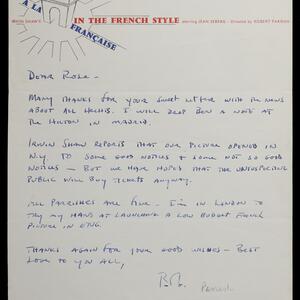 À LA
FRANÇAISE
IRWIN SHAW'S IN THE FRENCH STYLE starring JEAN SEBERG • Directed by ROBERT PARRISH
DEAR ROSE –
MANY THANKS FOR YOUR SWEET LETTER WITH THE NEWS
ABOUT ALL HECHTS. I WILL DROP BEN A NOTE AT
THE HILTON IN MADRID.
IRWIN SHAW REPORTS THAT OUR PICTURE OPENED IN
N.Y. TO SOME GOOD NOTICES & SOME NOT SO GOOD
NOTICES – BUT WE HAVE HOPES THAT THE UNSUSPECTING
PUBLIC WILL BUY TICKETS ANYWAY.
ALL PARRISHES ARE FINE – I'M IN LONDON TO
TRY MY HAND AT LAUNCHING A LOW BUDGET FRENCH
PICTURE IN ENG.
THANKS AGAIN FOR YOUR GOOD WISHES – BEST
LOVE TO YOU ALL,
Parrish